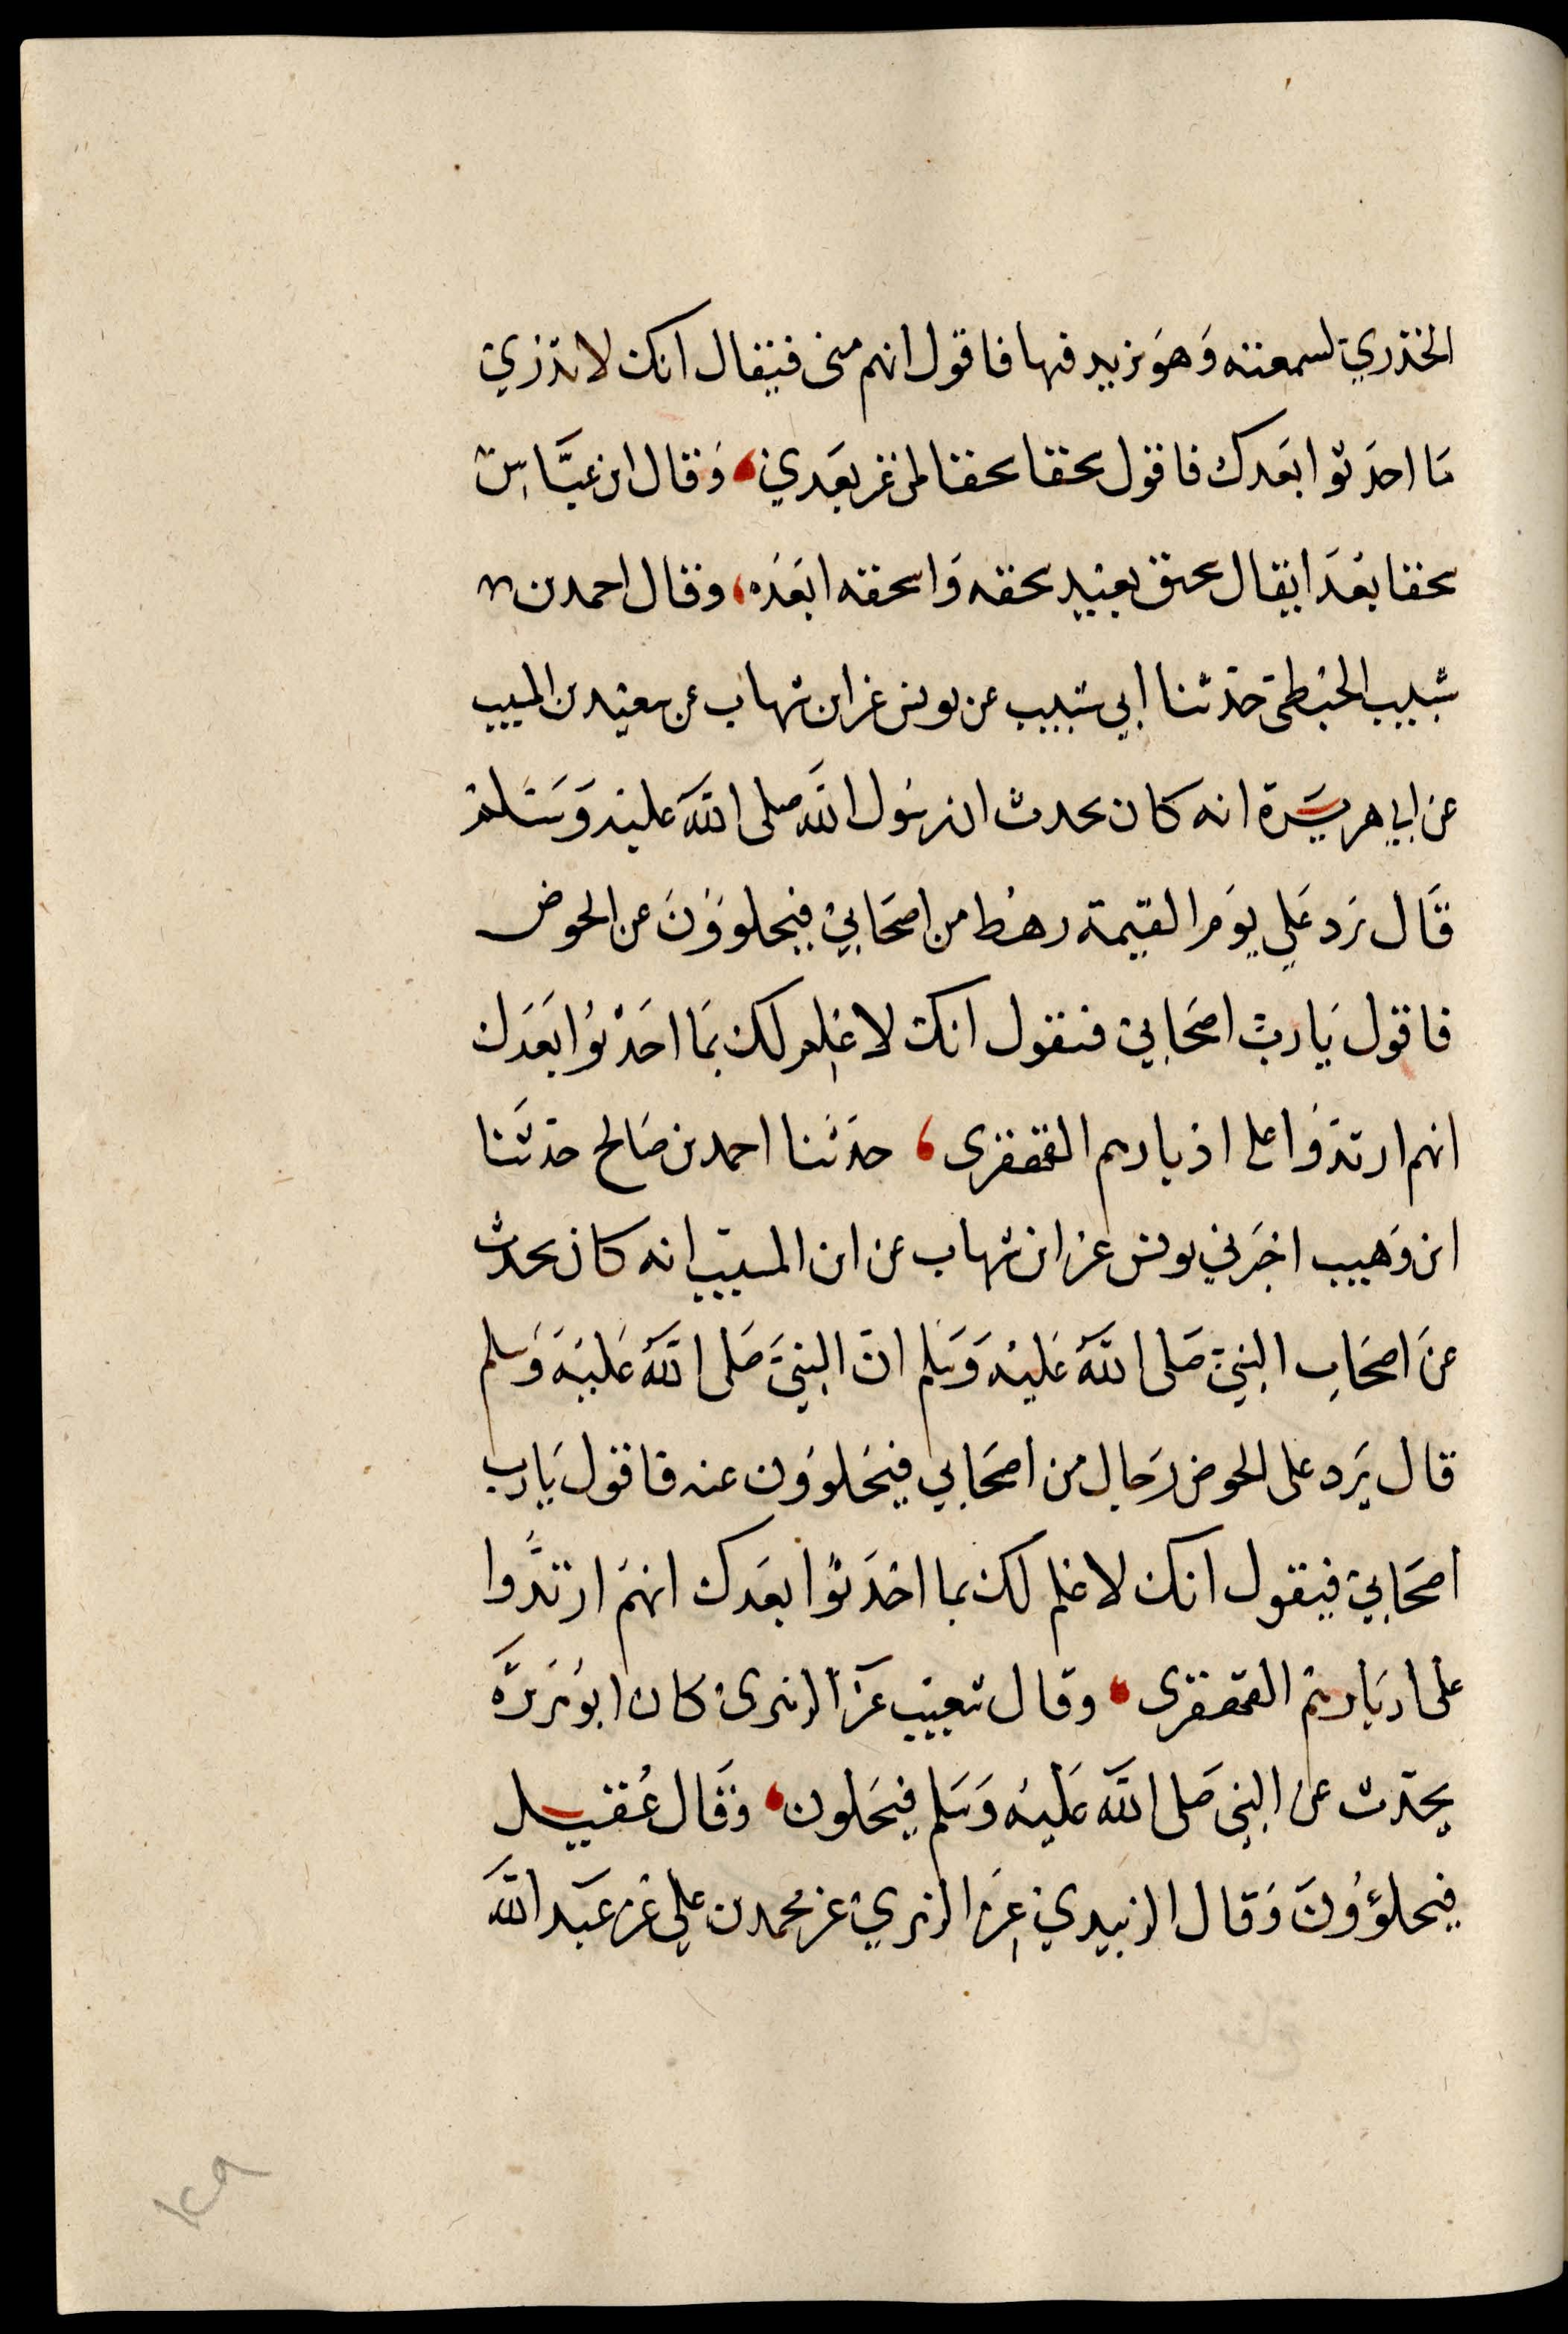 الخدري لسمعته وهو يزيد فيها فاقول انهم مني فيقال انك لا تدري
ما احدثوا بعدك فاقول سحقا سحقا لمن غير بعدي، وقال ابن عباس
سحقا بعدا يقال سحيق بعيد سحقه واسحقه ابعده، وقال احمد بن
شبيب الحبطي حدثنا ابي شبيب عن يونس عن ابن شهاب عن سعيد بن المسيب
عن ابي هريرة انه كان يحدث ان رسول الله صلى الله عليه وسلم
قال يرد علي يوم القيمة رهط من اصحابي فيحلوون عن الحوض
فاقول يا رب اصحابي فيقول انك لا علم لك بما احدثوا بعدك
انهم ارتدوا على ادبارهم القهقرى، حدثنا احمد بن صالح حدثنا
ابن وهيب اخبرني يونس عن ابن شهاب عن ابن المسيب انه كان يحدث
عن اصحاب النبي صلى الله عليه وسلم ان النبي صلى الله عليه وسلم
قال يرد على الحوض رجال من اصحابي فيحلوون عنه فاقول يا رب
اصحابي فيقول انك لا علم لك بما احدثوا بعدك انهم ارتدوا
على ادبارهم القهقرى، وقال شعيب عن الزهري كان ابو هريرة
يحدث عن النبي صلى الله عليه وسلم فيحلون، وقال عقيل
فيحلؤون وقال الزبيدي عن الزهري عن محمد بن علي عن عبد الله